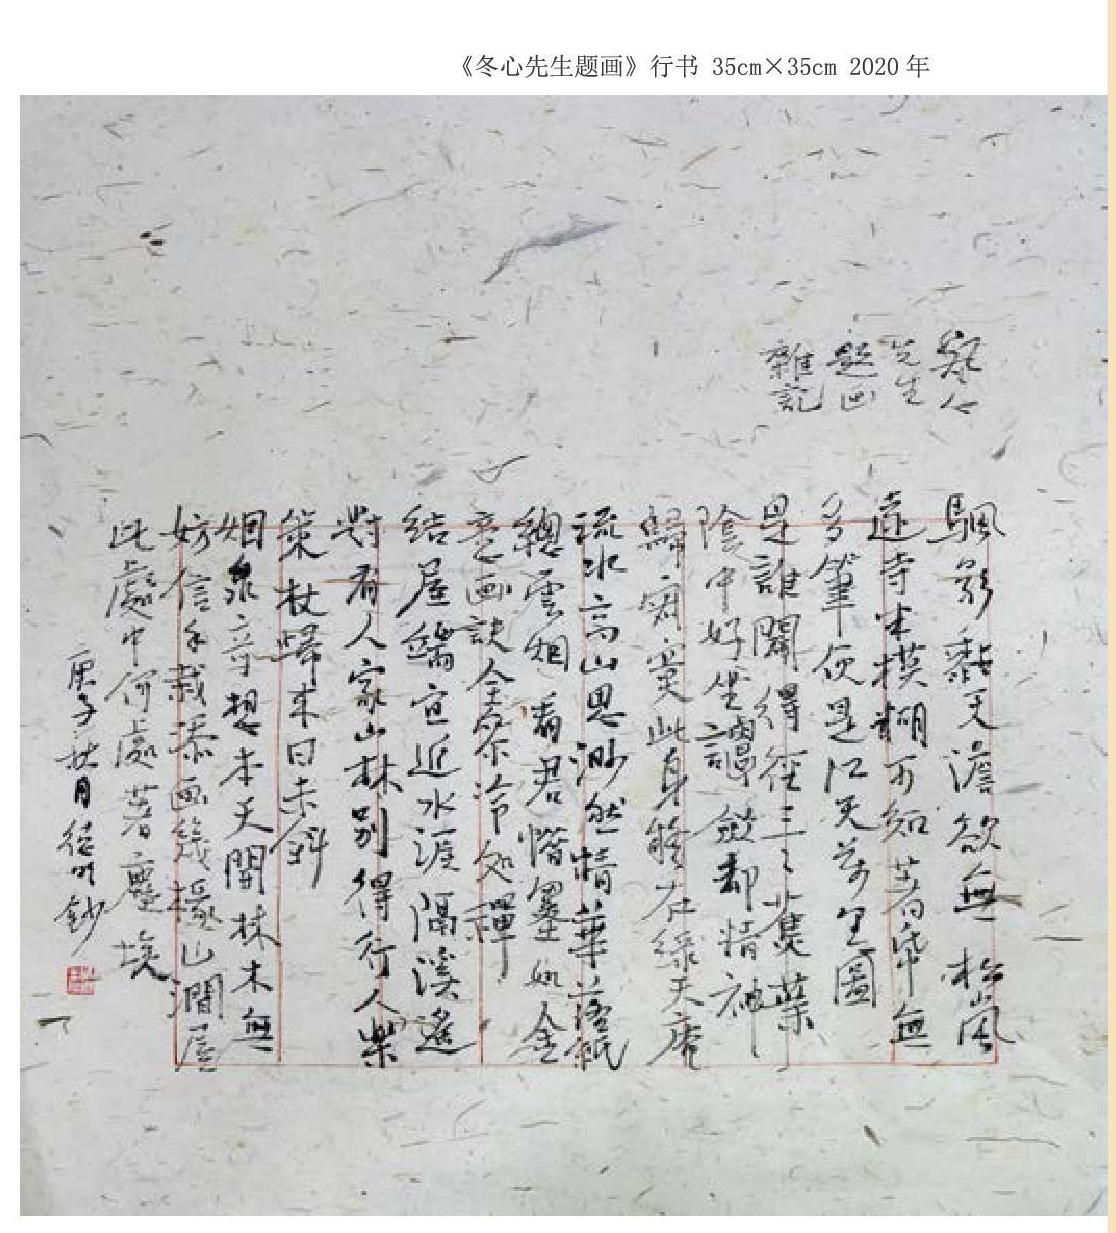 《冬心先生题画》行书 35cm×35cm 2020年
冬心
先生
题画
雜記
颿影黏天澹欲無松嵐
遠寺半模糊不知著帋無
多筆便是江天萬里圖
是誰闢得徑三三蕉葉
陰中好坐譚斂却精神
歸寂寞此身疑在綠天庵
流水高山思渺然精華落紙
總雲烟看君惜墨如金
意画訣全參冷処禪
結屋端宜近水涯隔溪遙
對有人家山林別得行人樂
策杖歸來日未斜
烟泉奇想本天開林木無
妨信手栽添画幾椽山澗屋
此處中何處著塵埃
庚子秋月 鈔